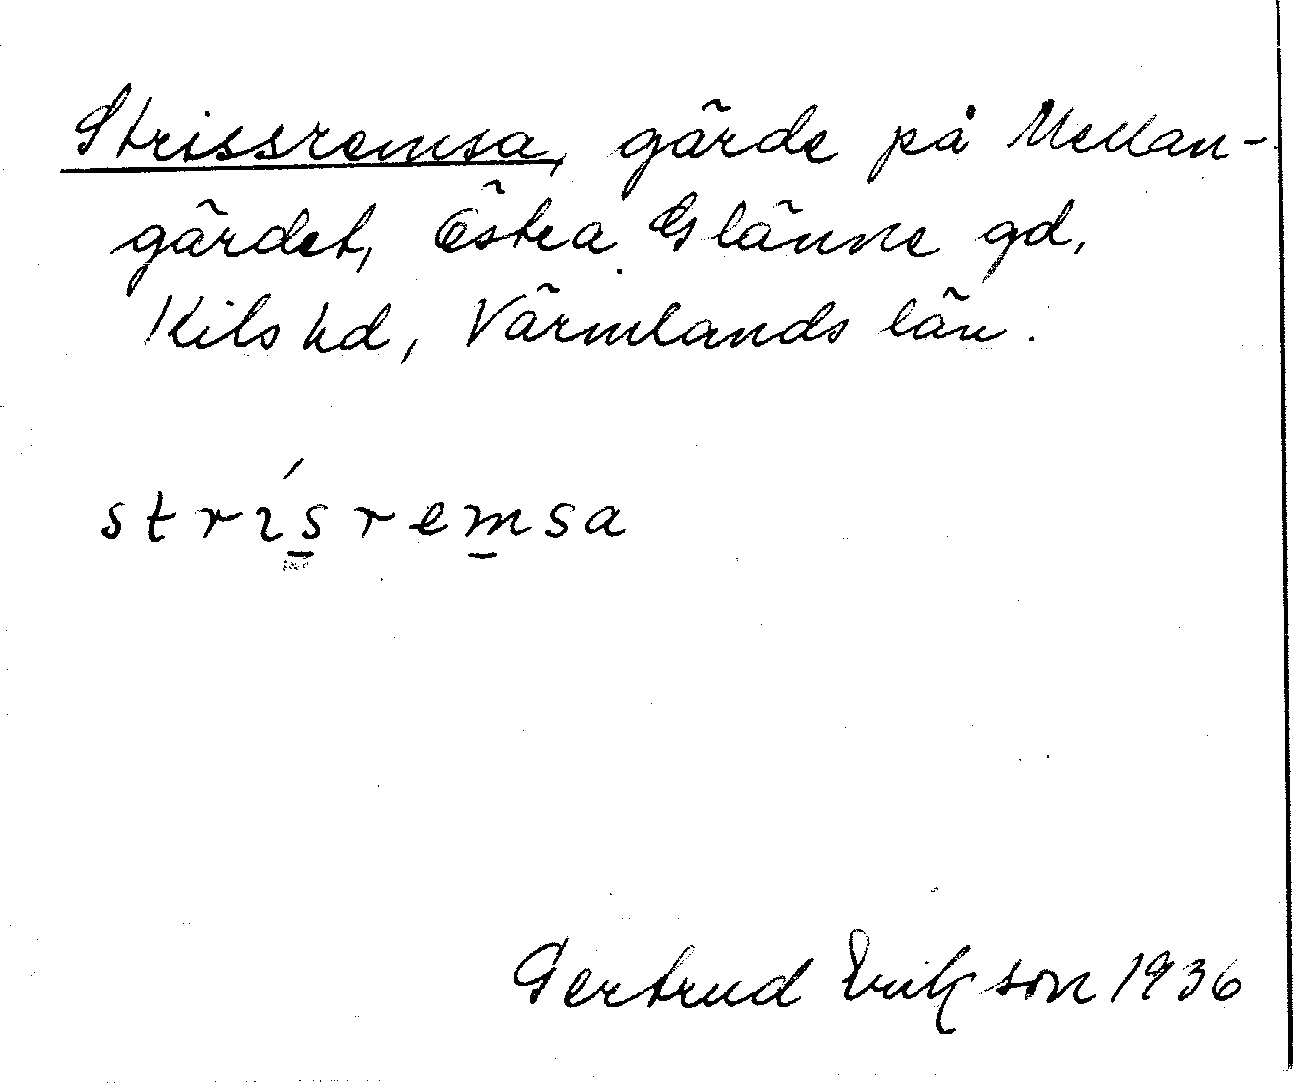 Strissremsa, gärde på Mellan-
gärdet, Östra Glänne gd,
Kils hd, Värmlands län.
strı´s̲rem̲sa
Gertrud Erikson 1936